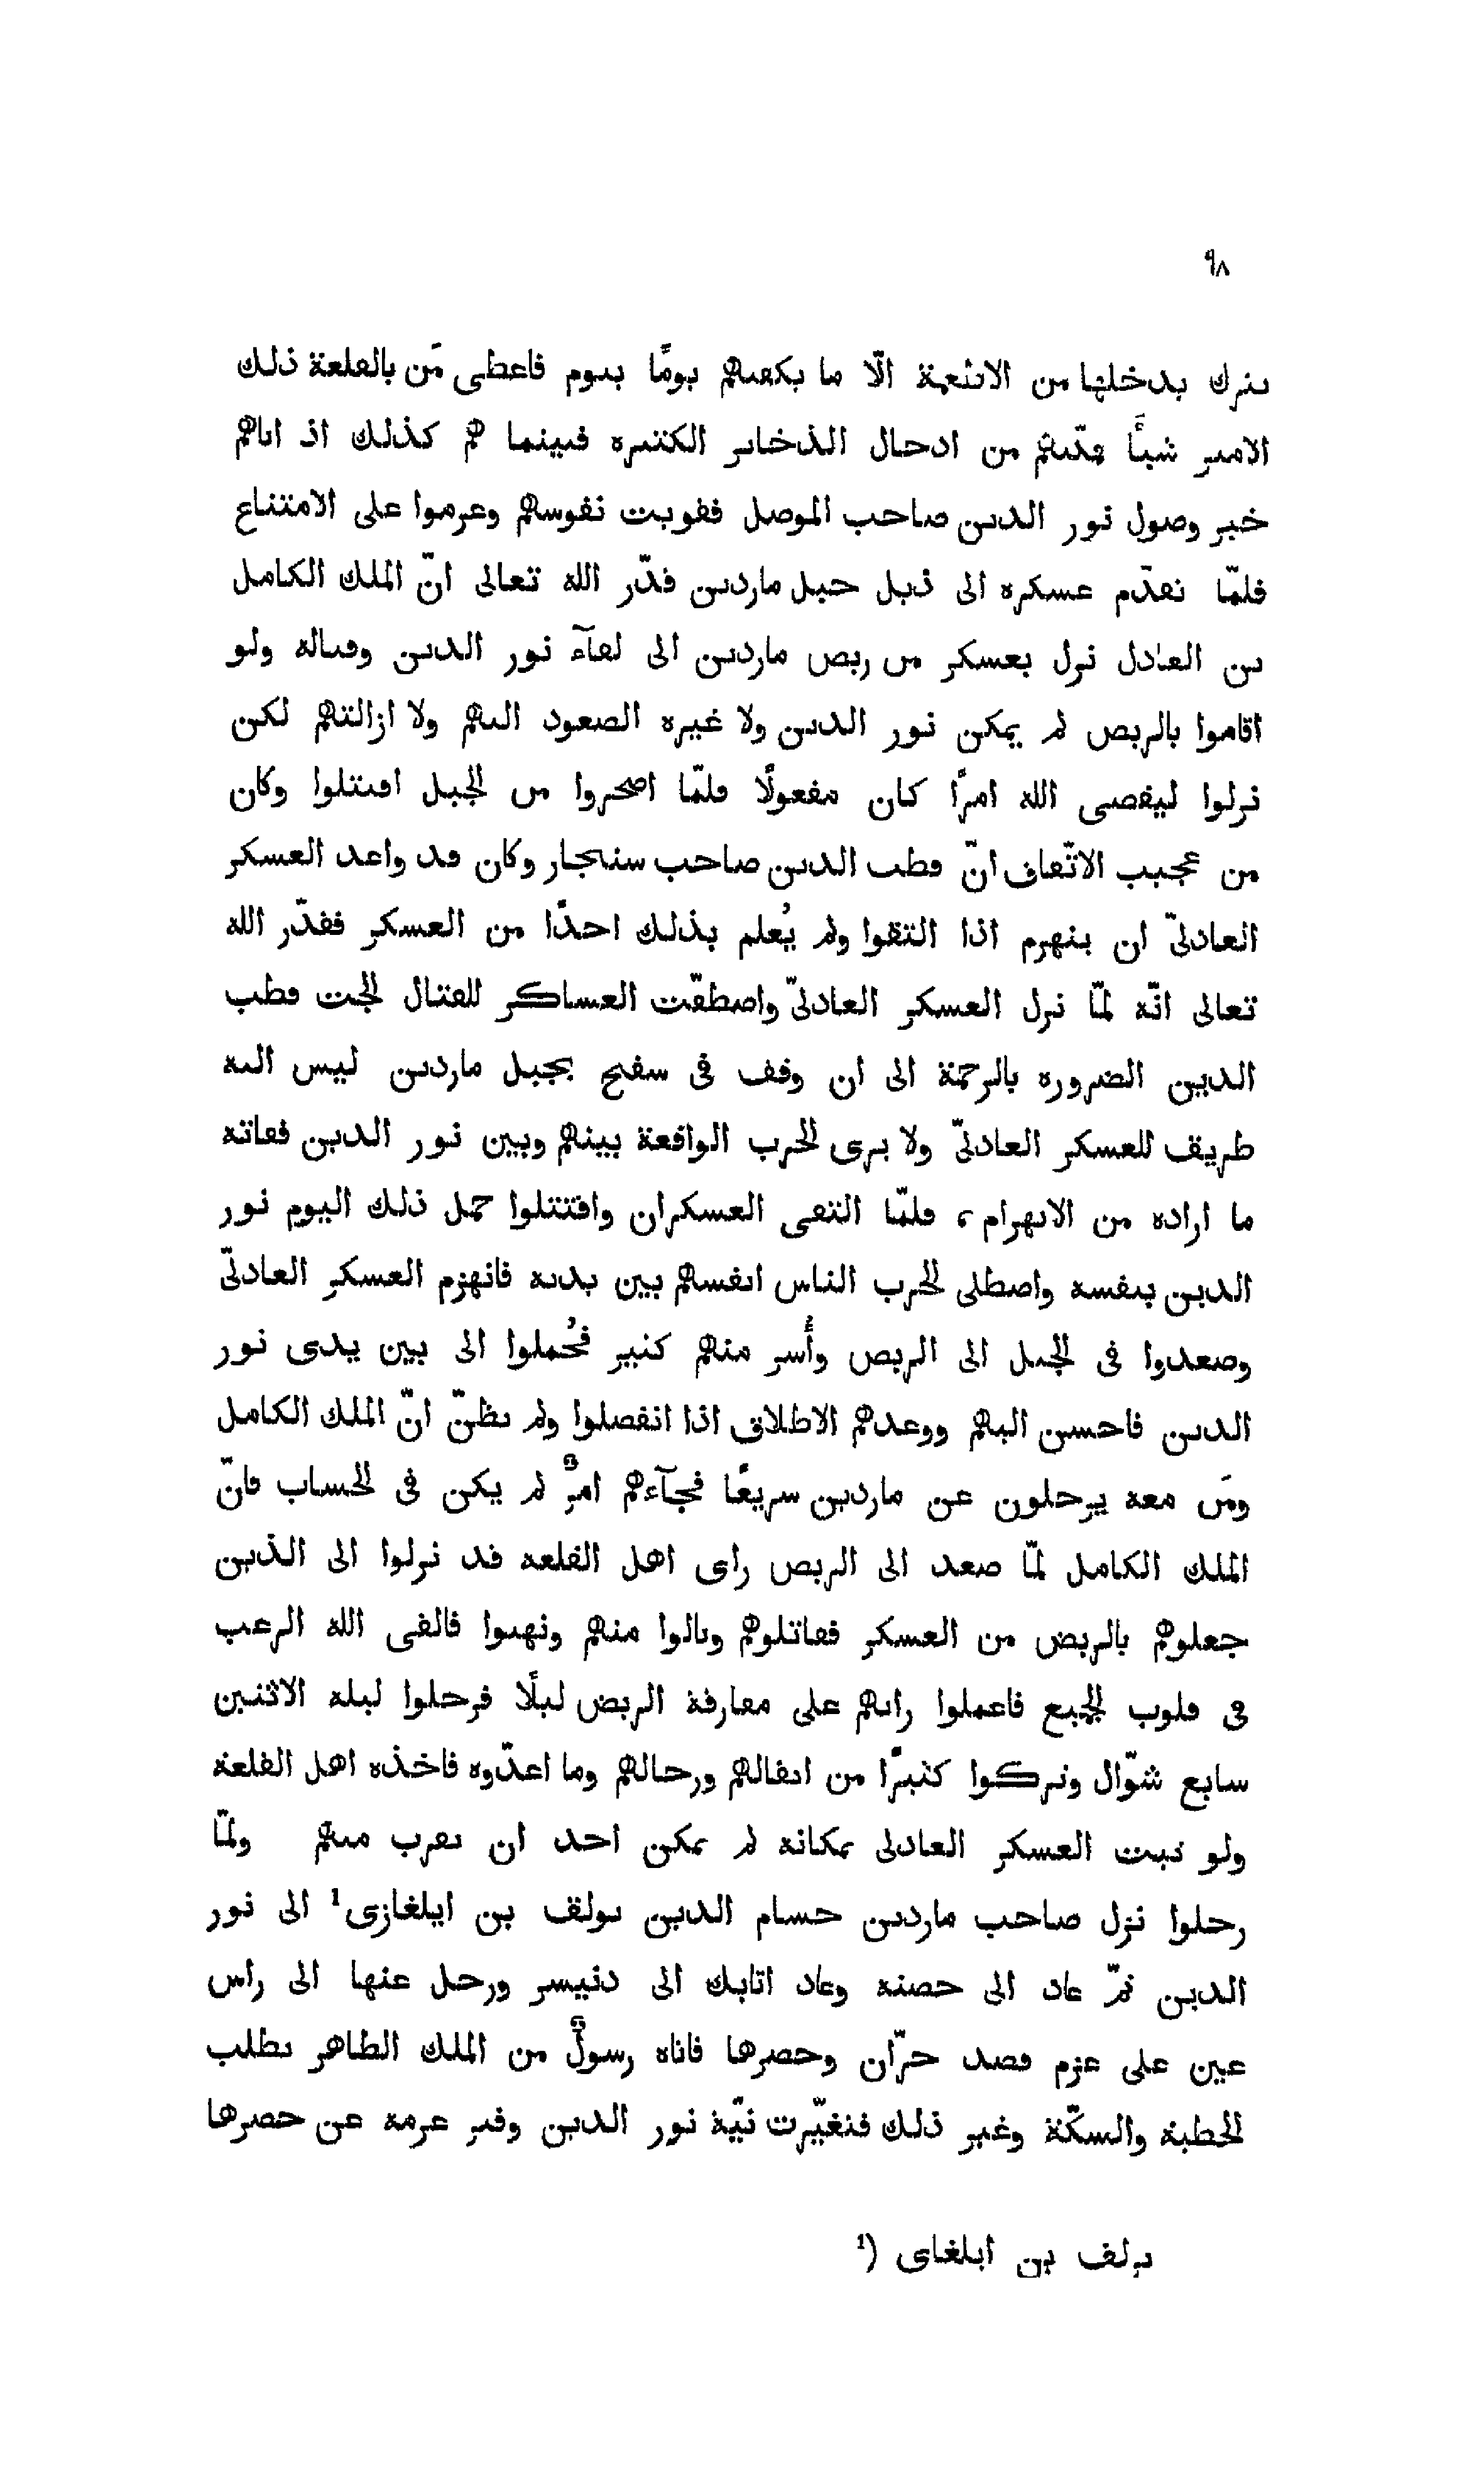 ٩٨
يترك يدخلها من الاطعمة الّا ما يكفيهم يومًا بيوم فاعطى مَن بالقلعة ذلك
الامير شيئًا فمكّنهم من ادخال الذخاير الكثيره فبينما هم كذلك اذ اتاهم
خبر وصول نور الدين صاحب الموصل فقويت نفوسهم وعزموا على الامتناع
فلمّا تقدّم عسكره الى ذيل جبل ماردين قدّر الله تعالى انّ الملك الكامل
بن العادل نزل بعسكر من ربض ماردين الى لقآء نور الدين وقتاله ولو
اقاموا بالربض لم يمكن نور الدين ولا غيره الصعود اليهم ولا ازالتهم لكن
نزلوا ليقضى الله امرًا كان مفعولًا فلمّا اصحروا من الجبل اقتتلوا وكان
من عجيب الاتّفاق انّ قطب الدين صاحب سنجار وكان قد واعد العسكر
العادلىّ ان ينهزم اذا التقوا ولم يُعلم بذلك احدًا من العسكر فقدّر الله
تعالى انّه لمّا نزل العسكر العادلىّ واصطفّت العساكر للقتال الجت قطب
الدين الضروره بالزحمة الى ان وقف فى سفح بجبل ماردين ليس اليه
طريق للعسكر العادلىّ ولا يرى الحرب الواقعة بينهم وبين نور الدين ففاته
ما اراده من الانهزام، فلمّا التقى العسكران واقتتلوا حمل ذلك اليوم نور
الدين بنفسه واصطلى الحرب الناس انفسهم بين يديه فانهزم العسكر العادلىّ
وصعدوا فى الجبل الى الربض وأُسر منهم كثير فحُملوا الى بين يدى نور
الدين فاحسن اليهم ووعدهم الاطلاق اذا انفصلوا ولم يظنّ انّ الملك الكامل
ومَن معه يرحلون عن ماردين سريعًا فجآءهم امرٌ لم يكن فى الحساب فانّ
الملك الكامل لمّا صعد الى الربض راى اهل القلعه قد نزلوا الى الذين
جعلوهم بالربض من العسكر فقاتلوهم ونالوا منهم ونهبوا فالقى الله الرعب
فى قلوب الجميع فاعملوا رايهم على مفارقة الربض ليلًا فرحلوا ليله الاثنين
سابع شوّال وتركوا كثيرًا من اثقالهم ورحالهم وما اعدّوه فاخذه اهل القلعة
ولو ثبت العسكر العادلى بمكانه لم يمكن احد ان يقرب منهم ولمّا
رحلوا نزل صاحب ماردين حسام الدين يولق بن ايلغازى¹ الى نور
الدين ثمّ عاد الى حصنه وعاد اتابك الى دنيسر ورحل عنها الى راس
عين على عزم قصد حرّان وحصرها فاتاه رسولٌ من الملك الظاهر يطلب
الخطبة والسكّة وغير ذلك فتغيّرت نيّة نور الدين وفتر عزمه عن حصرها
¹) برلف بن ابلغاى